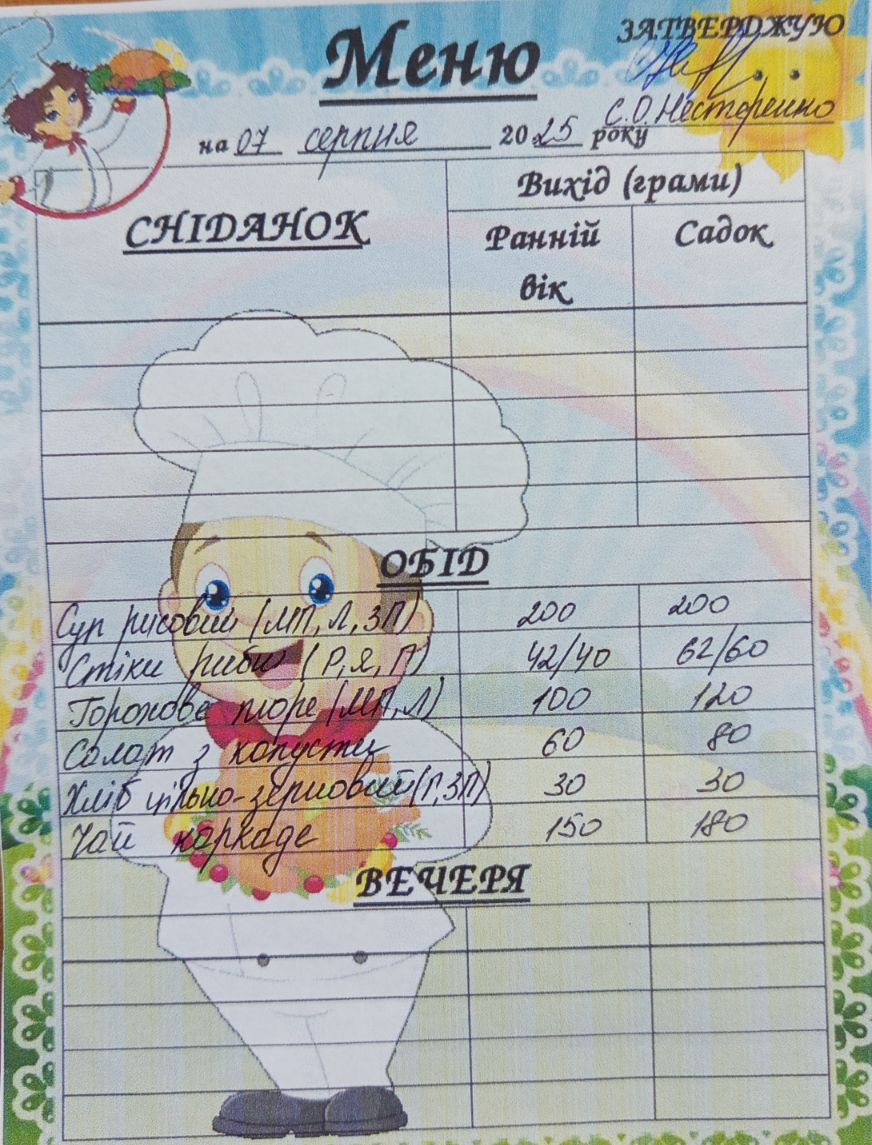 ЗАТВЕРДЖУЮ
Меню
С.О. Нестеренко
на 07 серпня 2025 року
СНІДАНОК
Вихід (грами)
Ранній вік
Садок
ОБІД
Суп рисовий (МП, Л, ЗП) 200 200
Стіки рибні (Р, Я, Г) 42/40 62/60
Горохове пюре (МП, Л) 100 120
Салат з капусти 60 80
Хліб цільно-зерновий (Г, ЗП) 30 30
Чай каркаде 150 180
ВЕЧЕРЯ